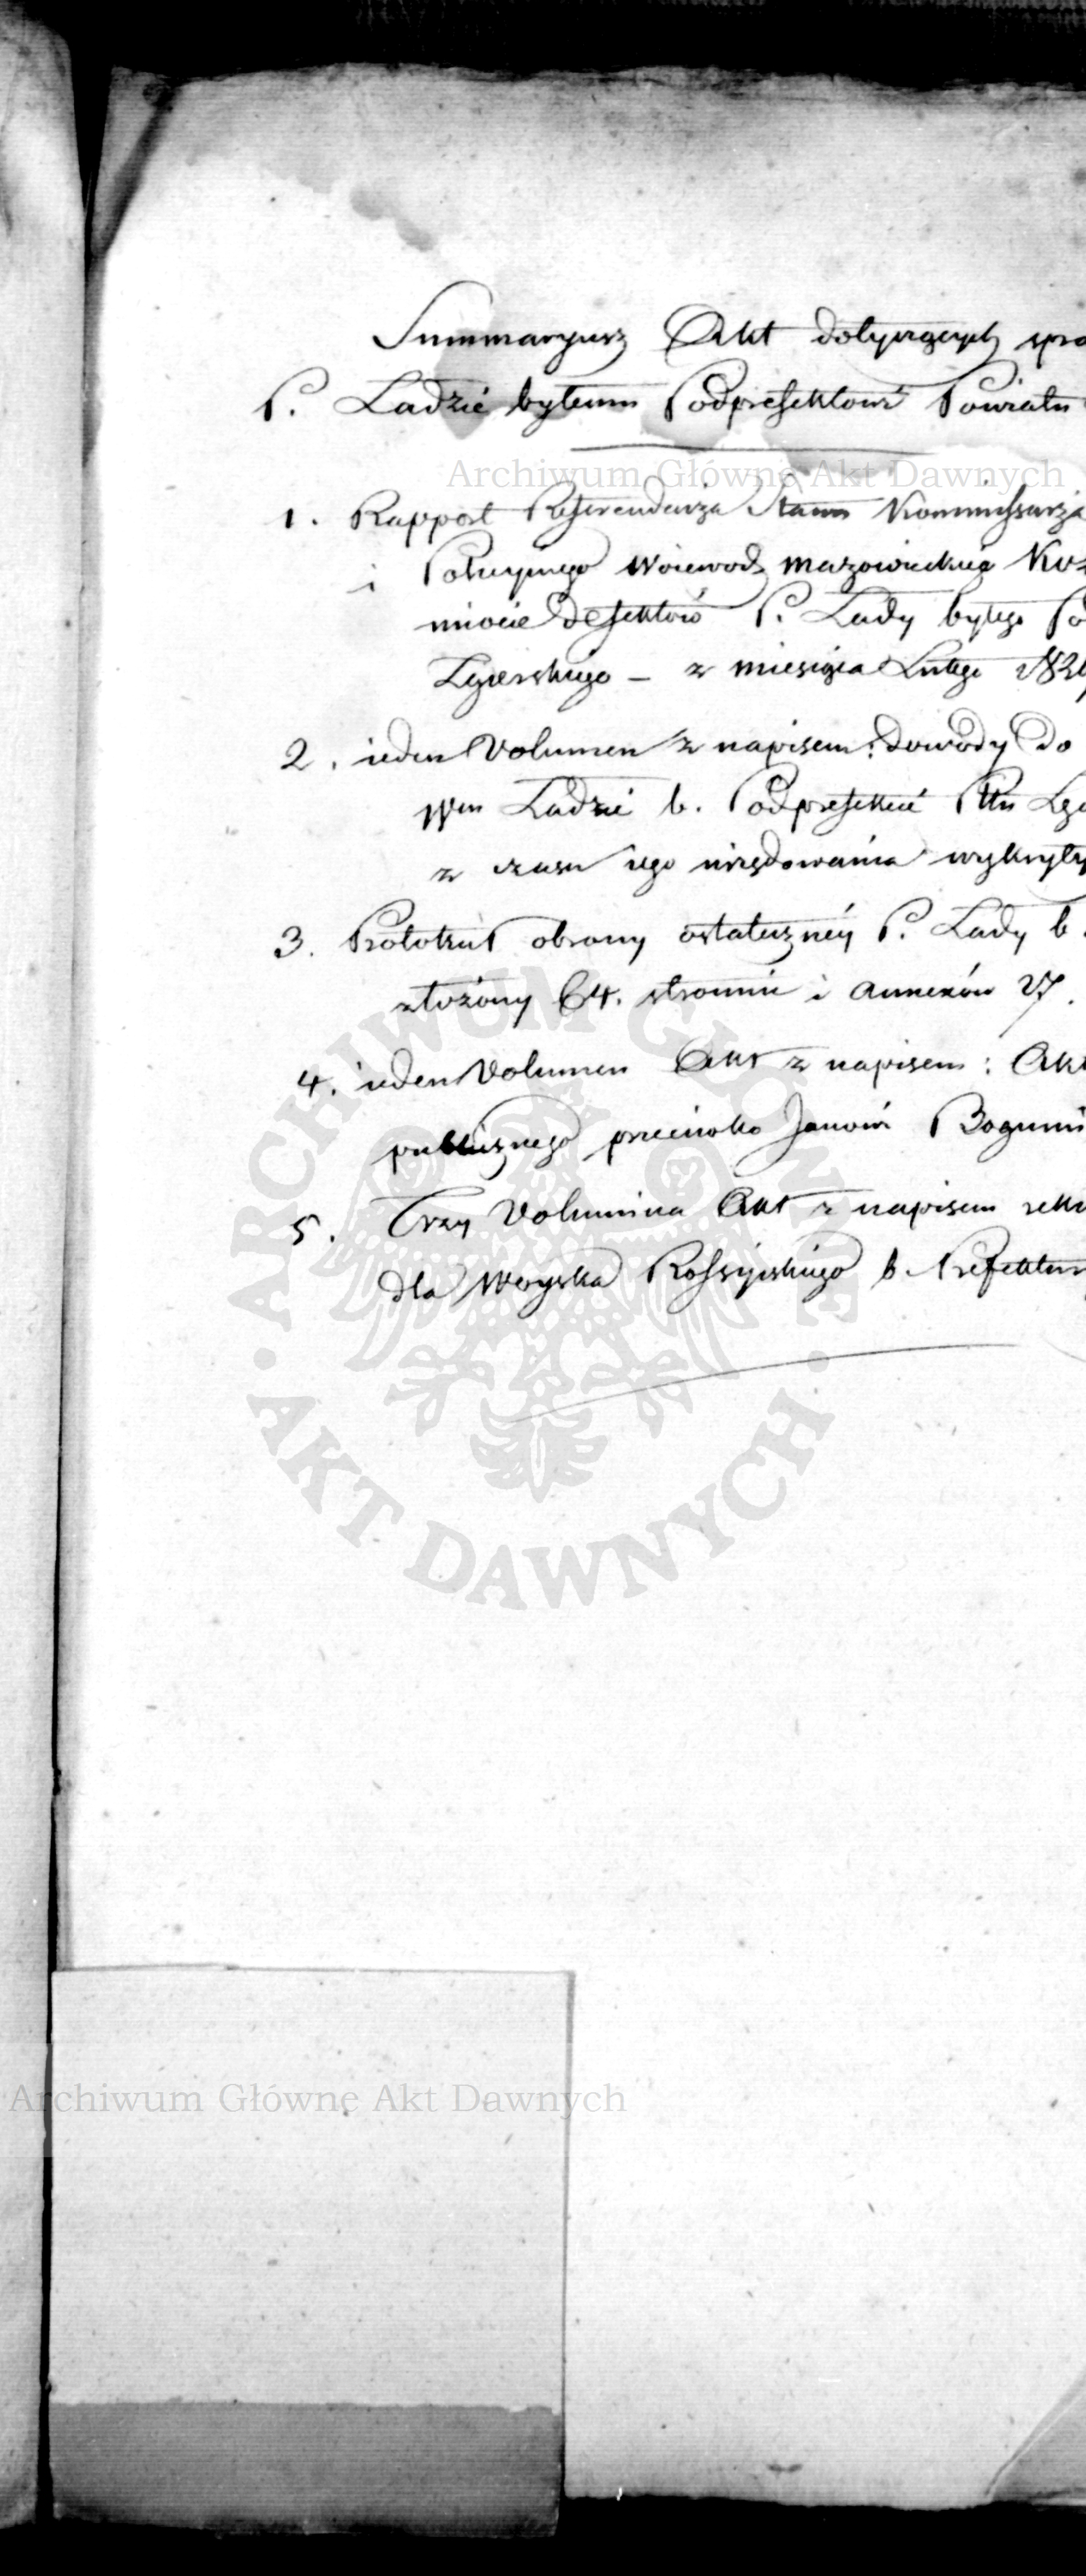 Summaryusz Akt dotyczących spra
P. Ladzie byłemu Podprefektowi Powiatu
Archiwum Główne Akt Dawnych
1. Rapport Referendarza Stanu Kommissarza
i Policyinego Woiewodz. Mazowieckiego
miocie defektów P. Lady byłego Po
Zgierskiego – z miesiąca Lutego
2. ieden Volumen z napisem: Dowody do
Wm Ladzie b. Podprefekcie Pttu Zgi
z czasu iego urzędowania wykryty
3. Protokuł obrony ostateczney P. Lady b.
złożony 64. stronnic i annexów 27.
4. ieden Volumen Akt z napisem: Akt
publicznego przeciwko Janowi Bogumi
5. Trzy Volumina Akt z napisem rekw
dla Woyska Rossyiskiego b. Prefektury
ARCHIWUM GŁÓWNE · AKT DAWNYCH ·
Archiwum Główne Akt Dawnych